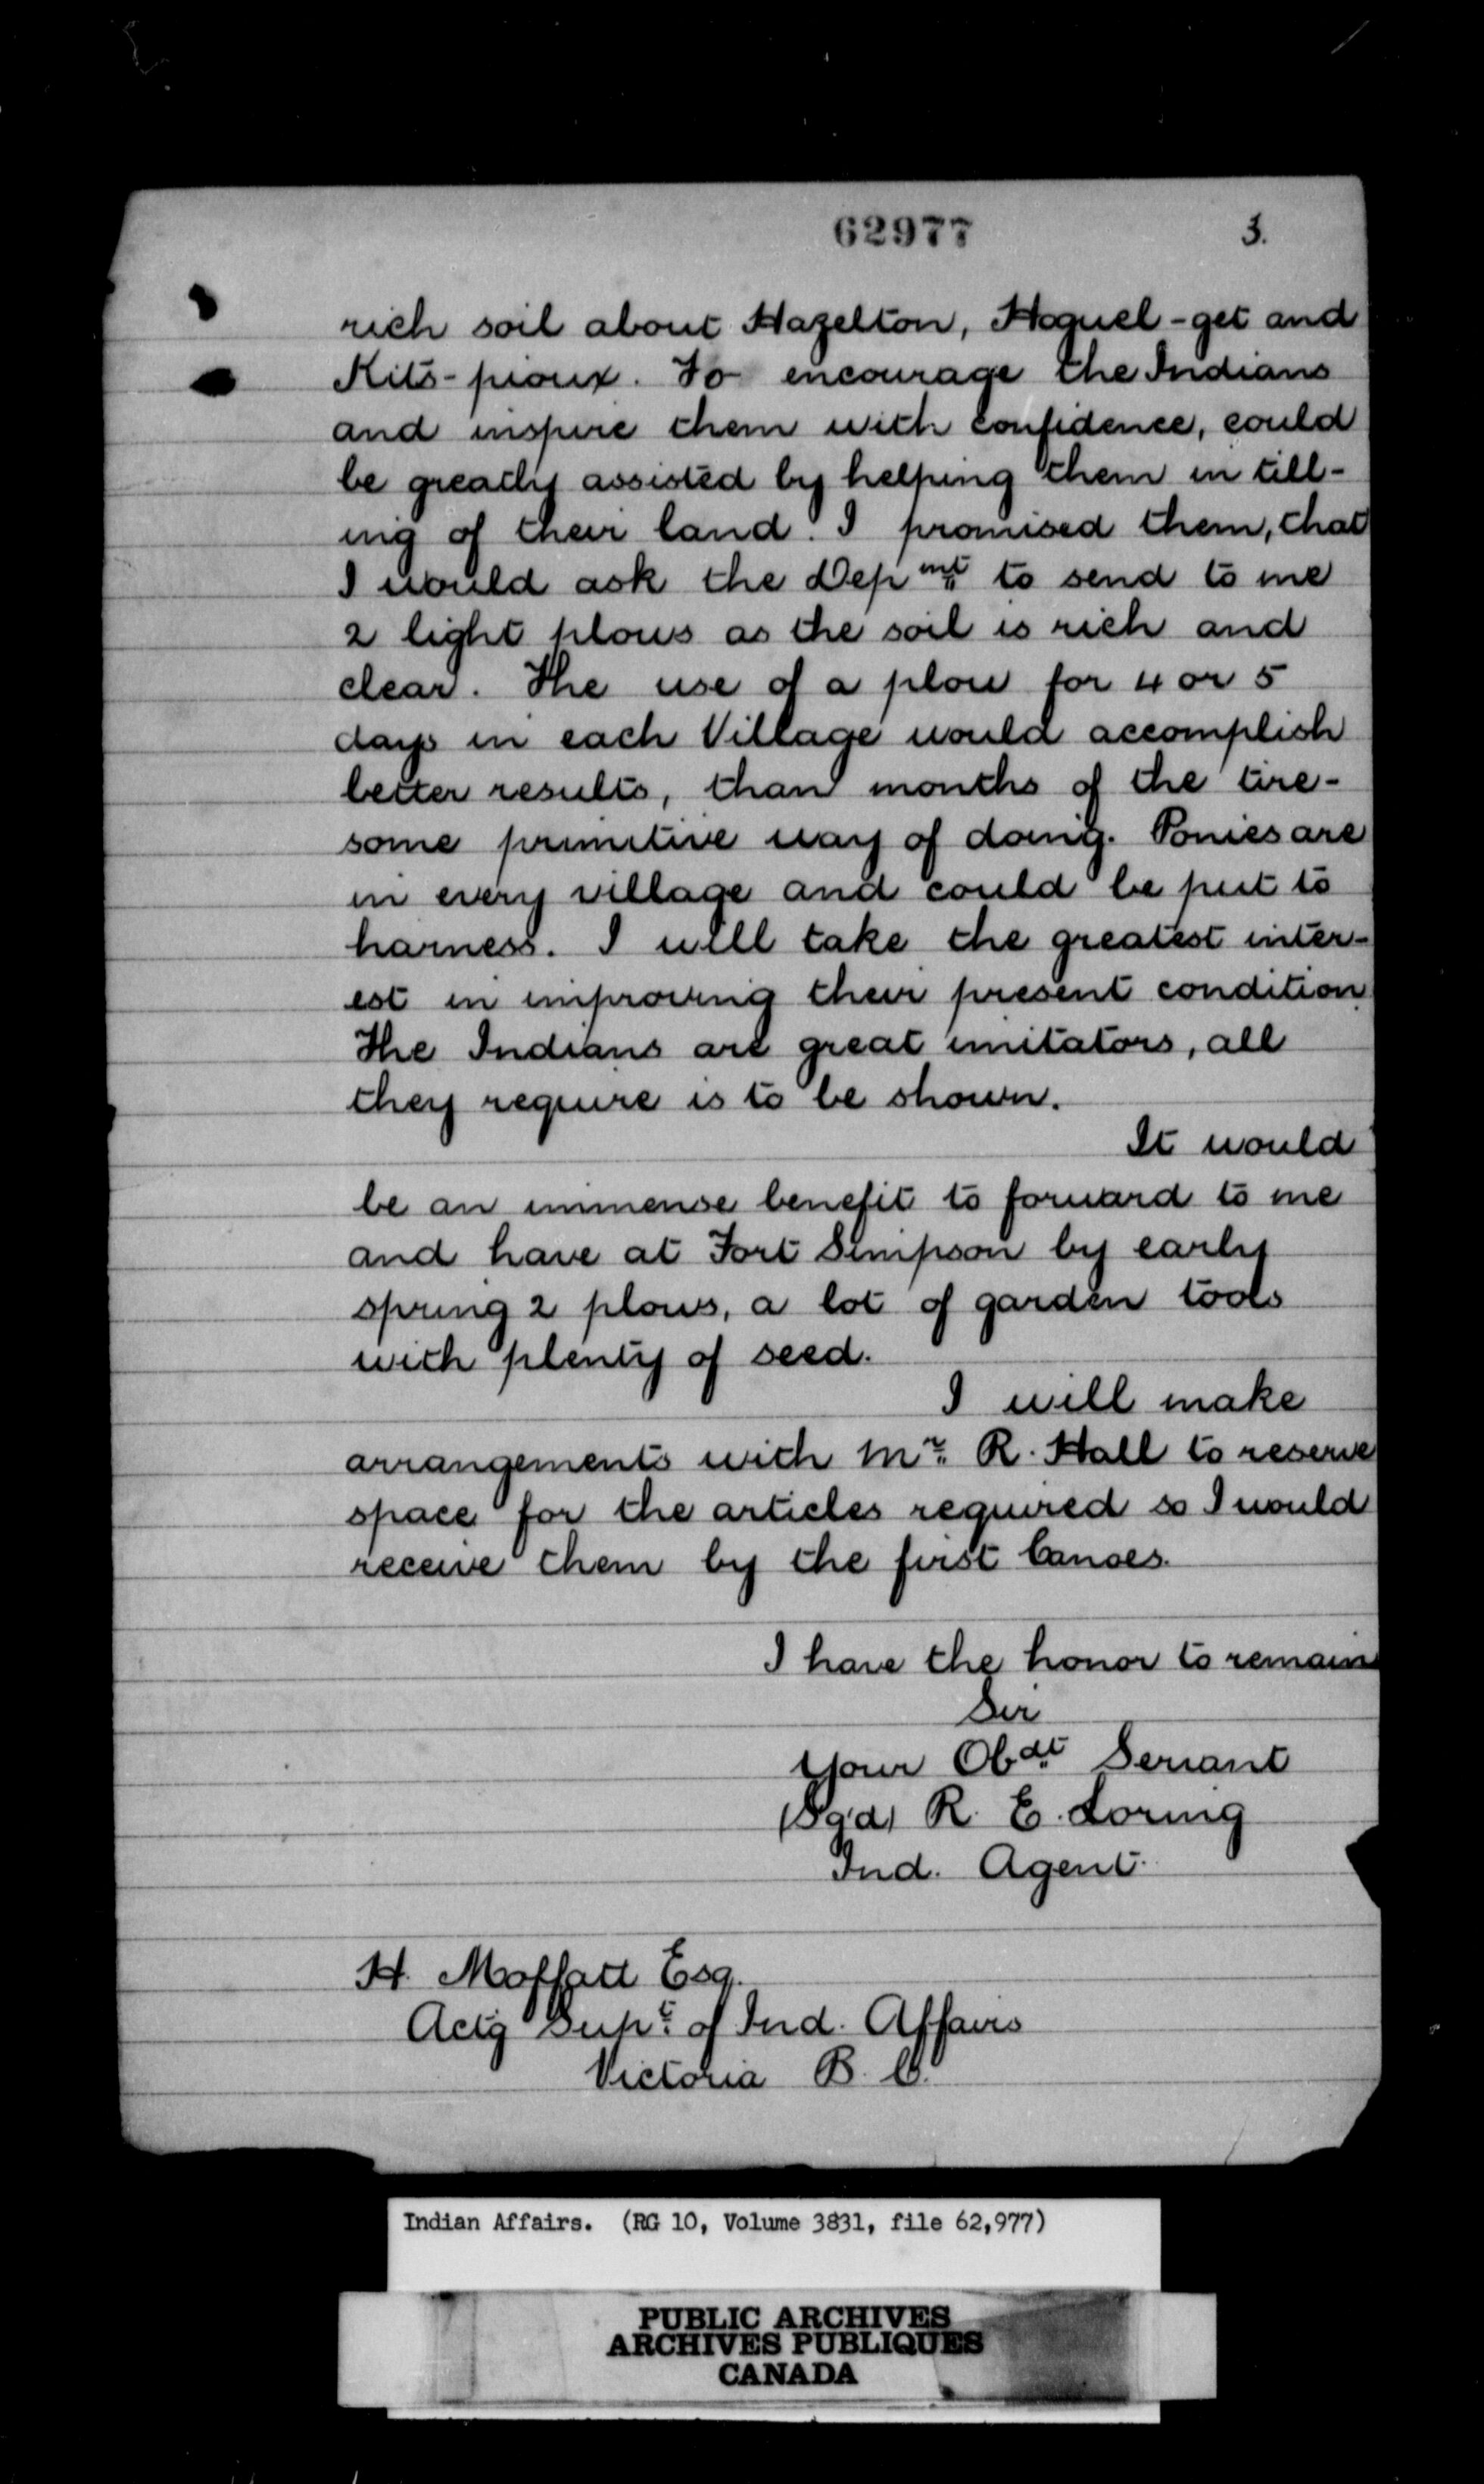 62977 3.
rich soil about Hazelton, Hoquel-get and
Kits-pioux. To encourage the Indians
and inspire them with confidence, could
be greatly assisted by helping them in till-
ing of their land. I promised them, that
I would ask the Depmt to send to me
2 light plows as the soil is rich and
clear. The use of a plow for 4 or 5
days in each Village would accomplish
better results, than months of the tire-
some primitive way of doing. Ponies are
in every village and could be put to
harness. I will take the greatest inter-
est in improving their present condition.
The Indians are great imitators, all
they require is to be shown.
It would
be an immense benefit to forward to me
and have at Fort Simpson by early
spring 2 plows, a lot of garden tools
with plenty of seed.
I will make
arrangements with Mr. R. Hall to reserve
space for the articles required so I would
receive them by the first Canoes.
I have the honor to remain
Sir
Your Obdt Servant
(Sg'd) R. E. Loring
Ind. Agent.
H. Moffatt Esq.
Actg Supt. of Ind. Affairs
Victoria B. C.
Indian Affairs. (RG 10, Volume 3831, file 62,977)
PUBLIC ARCHIVES
ARCHIVES PUBLIQUES
CANADA